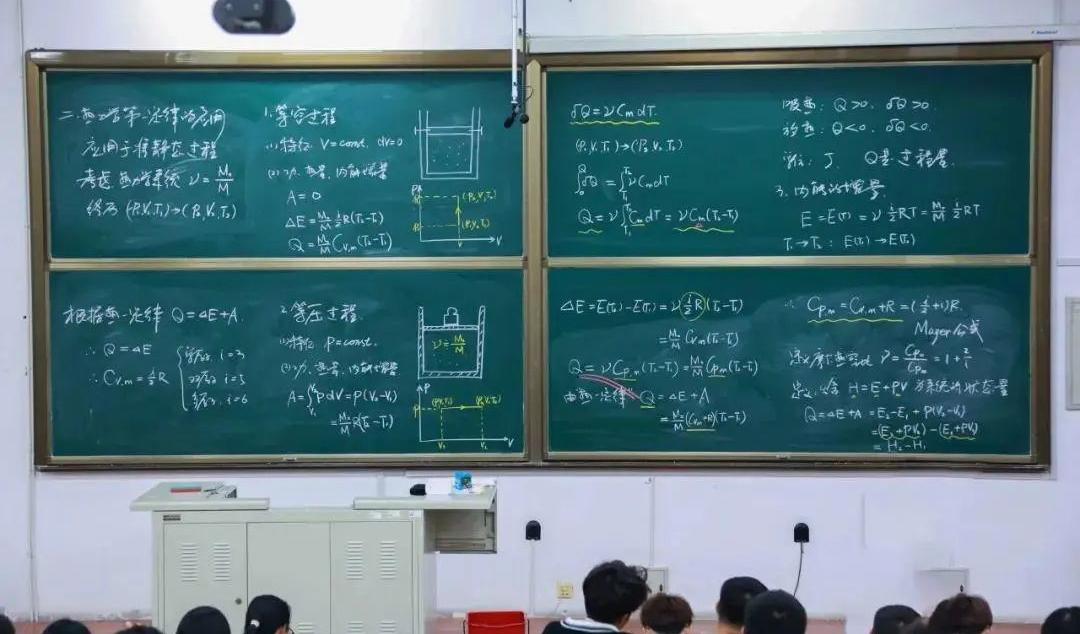 二、热力学第一定律的应用
应用于准静态过程
考虑热力学系统 ν = M₀/M
终态 (P₁V₁T₁)→(P₂V₂T₂)
1. 等容过程
(1) 特征 V=const. dV=0
(2) 功、热量、内能增量
A=0
ΔE = M₀/M i/2 R(T₂-T₁)
Q = M₀/M C_{V,m}(T₂-T₁)
P
(P₂,V,T₂)
(P₁,V,T₁)
V
V
根据热一定律 Q=ΔE+A.
∴ Q=ΔE
∴ C_{V,m} = i/2 R
i=3
i=5
i=6
2. 等压过程
(1) 特征 P=const.
(2) 功、热量、内能增量
A=∫_{V₁}^{V₂} PdV = P(V₂-V₁)
= M₀/M R(T₂-T₁)
ν = M₀/M
P
P
(P,V₁,T₁)
(P,V₂,T₂)
V₁
V₂
V
δQ = νC_m dT.
(P₁V₁T₁)→(P₂V₂T₂)
∫₀^Q δQ = ∫_{T₁}^{T₂} νC_m dT
Q = ν∫_{T₁}^{T₂} C_m dT = νC_m(T₂-T₁)
吸热: Q>0, δQ>0.
放热: Q<0, δQ<0.
单位: J, Q是过程量.
3. 内能的增量
E=E(T)=ν i/2 RT = M₀/M i/2 RT
T₁→T₂: E(T₁)→E(T₂)
ΔE=E(T₂)-E(T₁)=ν(i/2 R)(T₂-T₁)
= M₀/M C_{V,m}(T₂-T₁)
Q=νC_{p,m}(T₂-T₁) = M₀/M C_{p,m}(T₂-T₁)
由热一定律 Q=ΔE+A
= M₀/M (C_{V,m}+R)(T₂-T₁)
∴ C_{p,m} = C_{V,m}+R = (i/2+1)R.
Mayer公式
定义摩尔热容比 γ = = 1+2/i
定义: 焓 H=E+PV 为系统的状态量
Q=ΔE+A=E₂-E₁+P(V₂-V₁)
=(E₂+PV₂)-(E₁+PV₁)
= H₂-H₁